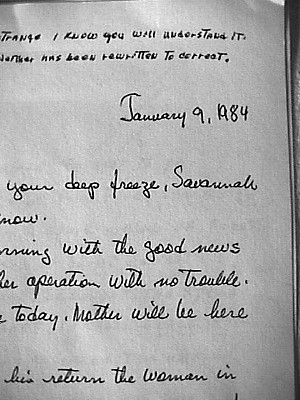 strange I know you will understand it.
neither has been rewritten to correct.
January 9, 1984
your deep freeze, Savannah
now.
rning with the good news
her operation with no trouble.
today. Mother will be here
his return the woman in